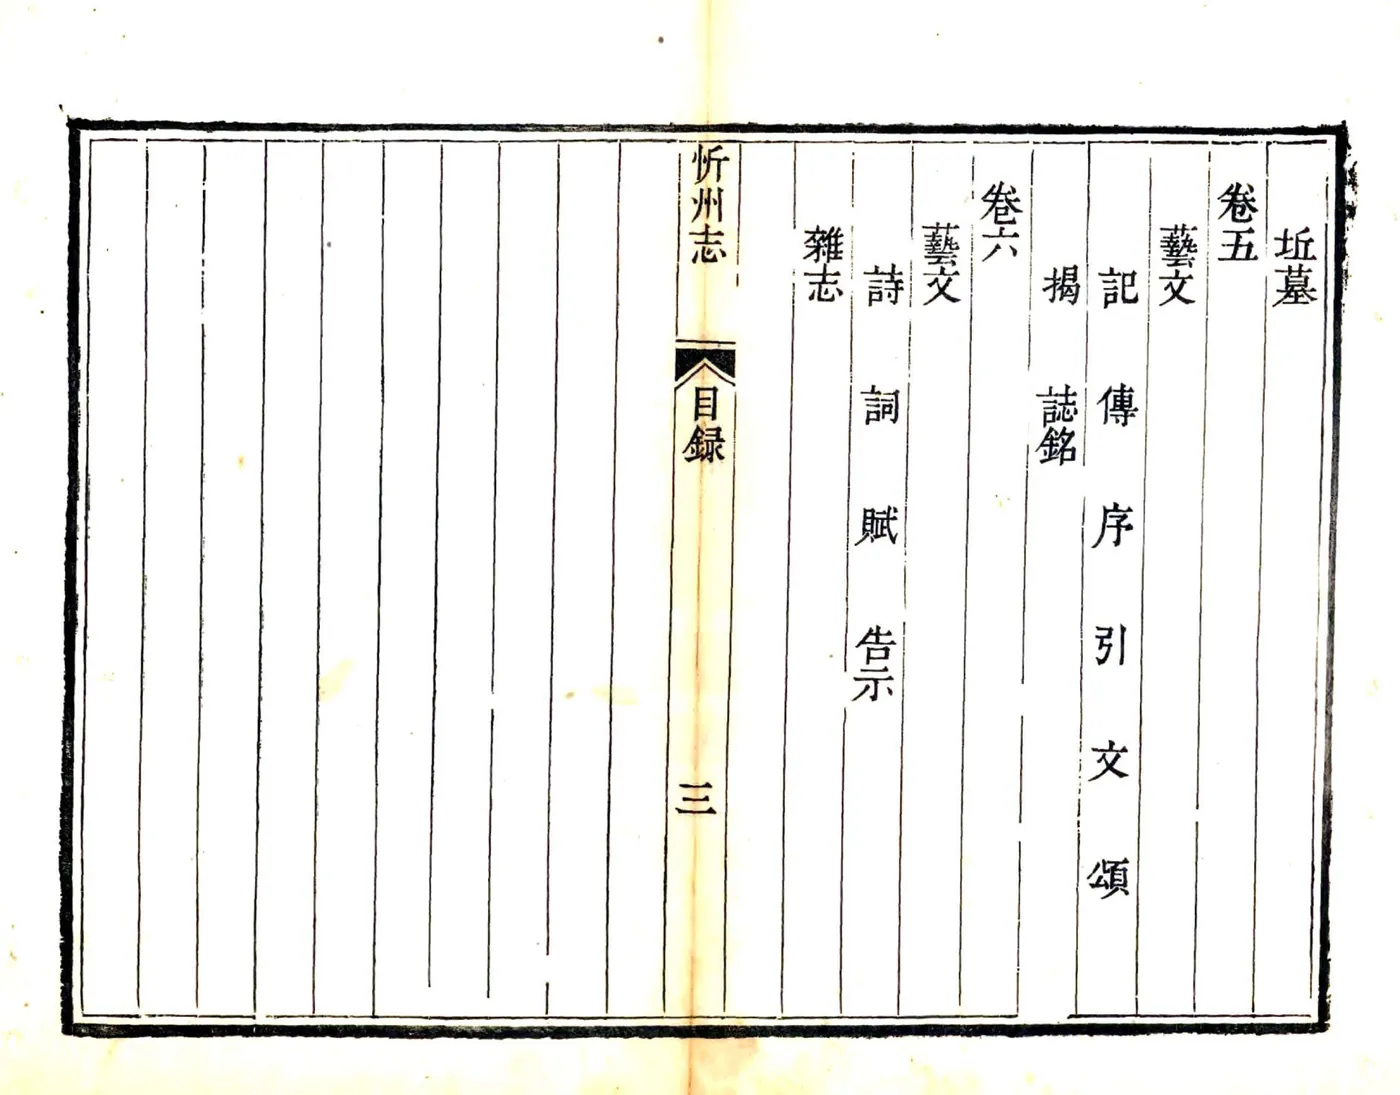 坵墓
卷五
藝文
記 傳 序 引 文 頌
揭 誌銘
卷六
藝文
詩 詞 賦 告示
雜志
忻州志 目録 三